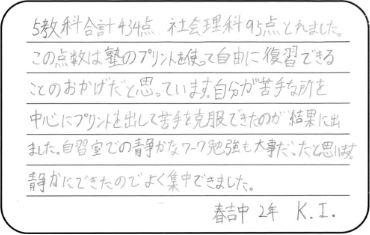 5教科合計434点 社会理科95点とれました。
この点数は塾のプリントを使って自由に復習できる
ことのおかげだと思っています。自分が苦手な所を
中心にプリントを出して苦手を克服できたのが結果に出
ました。自習室での静かなワーク勉強も大事だったと思います。
静かにできたのでよく集中できました。
春吉中2年 K.I.